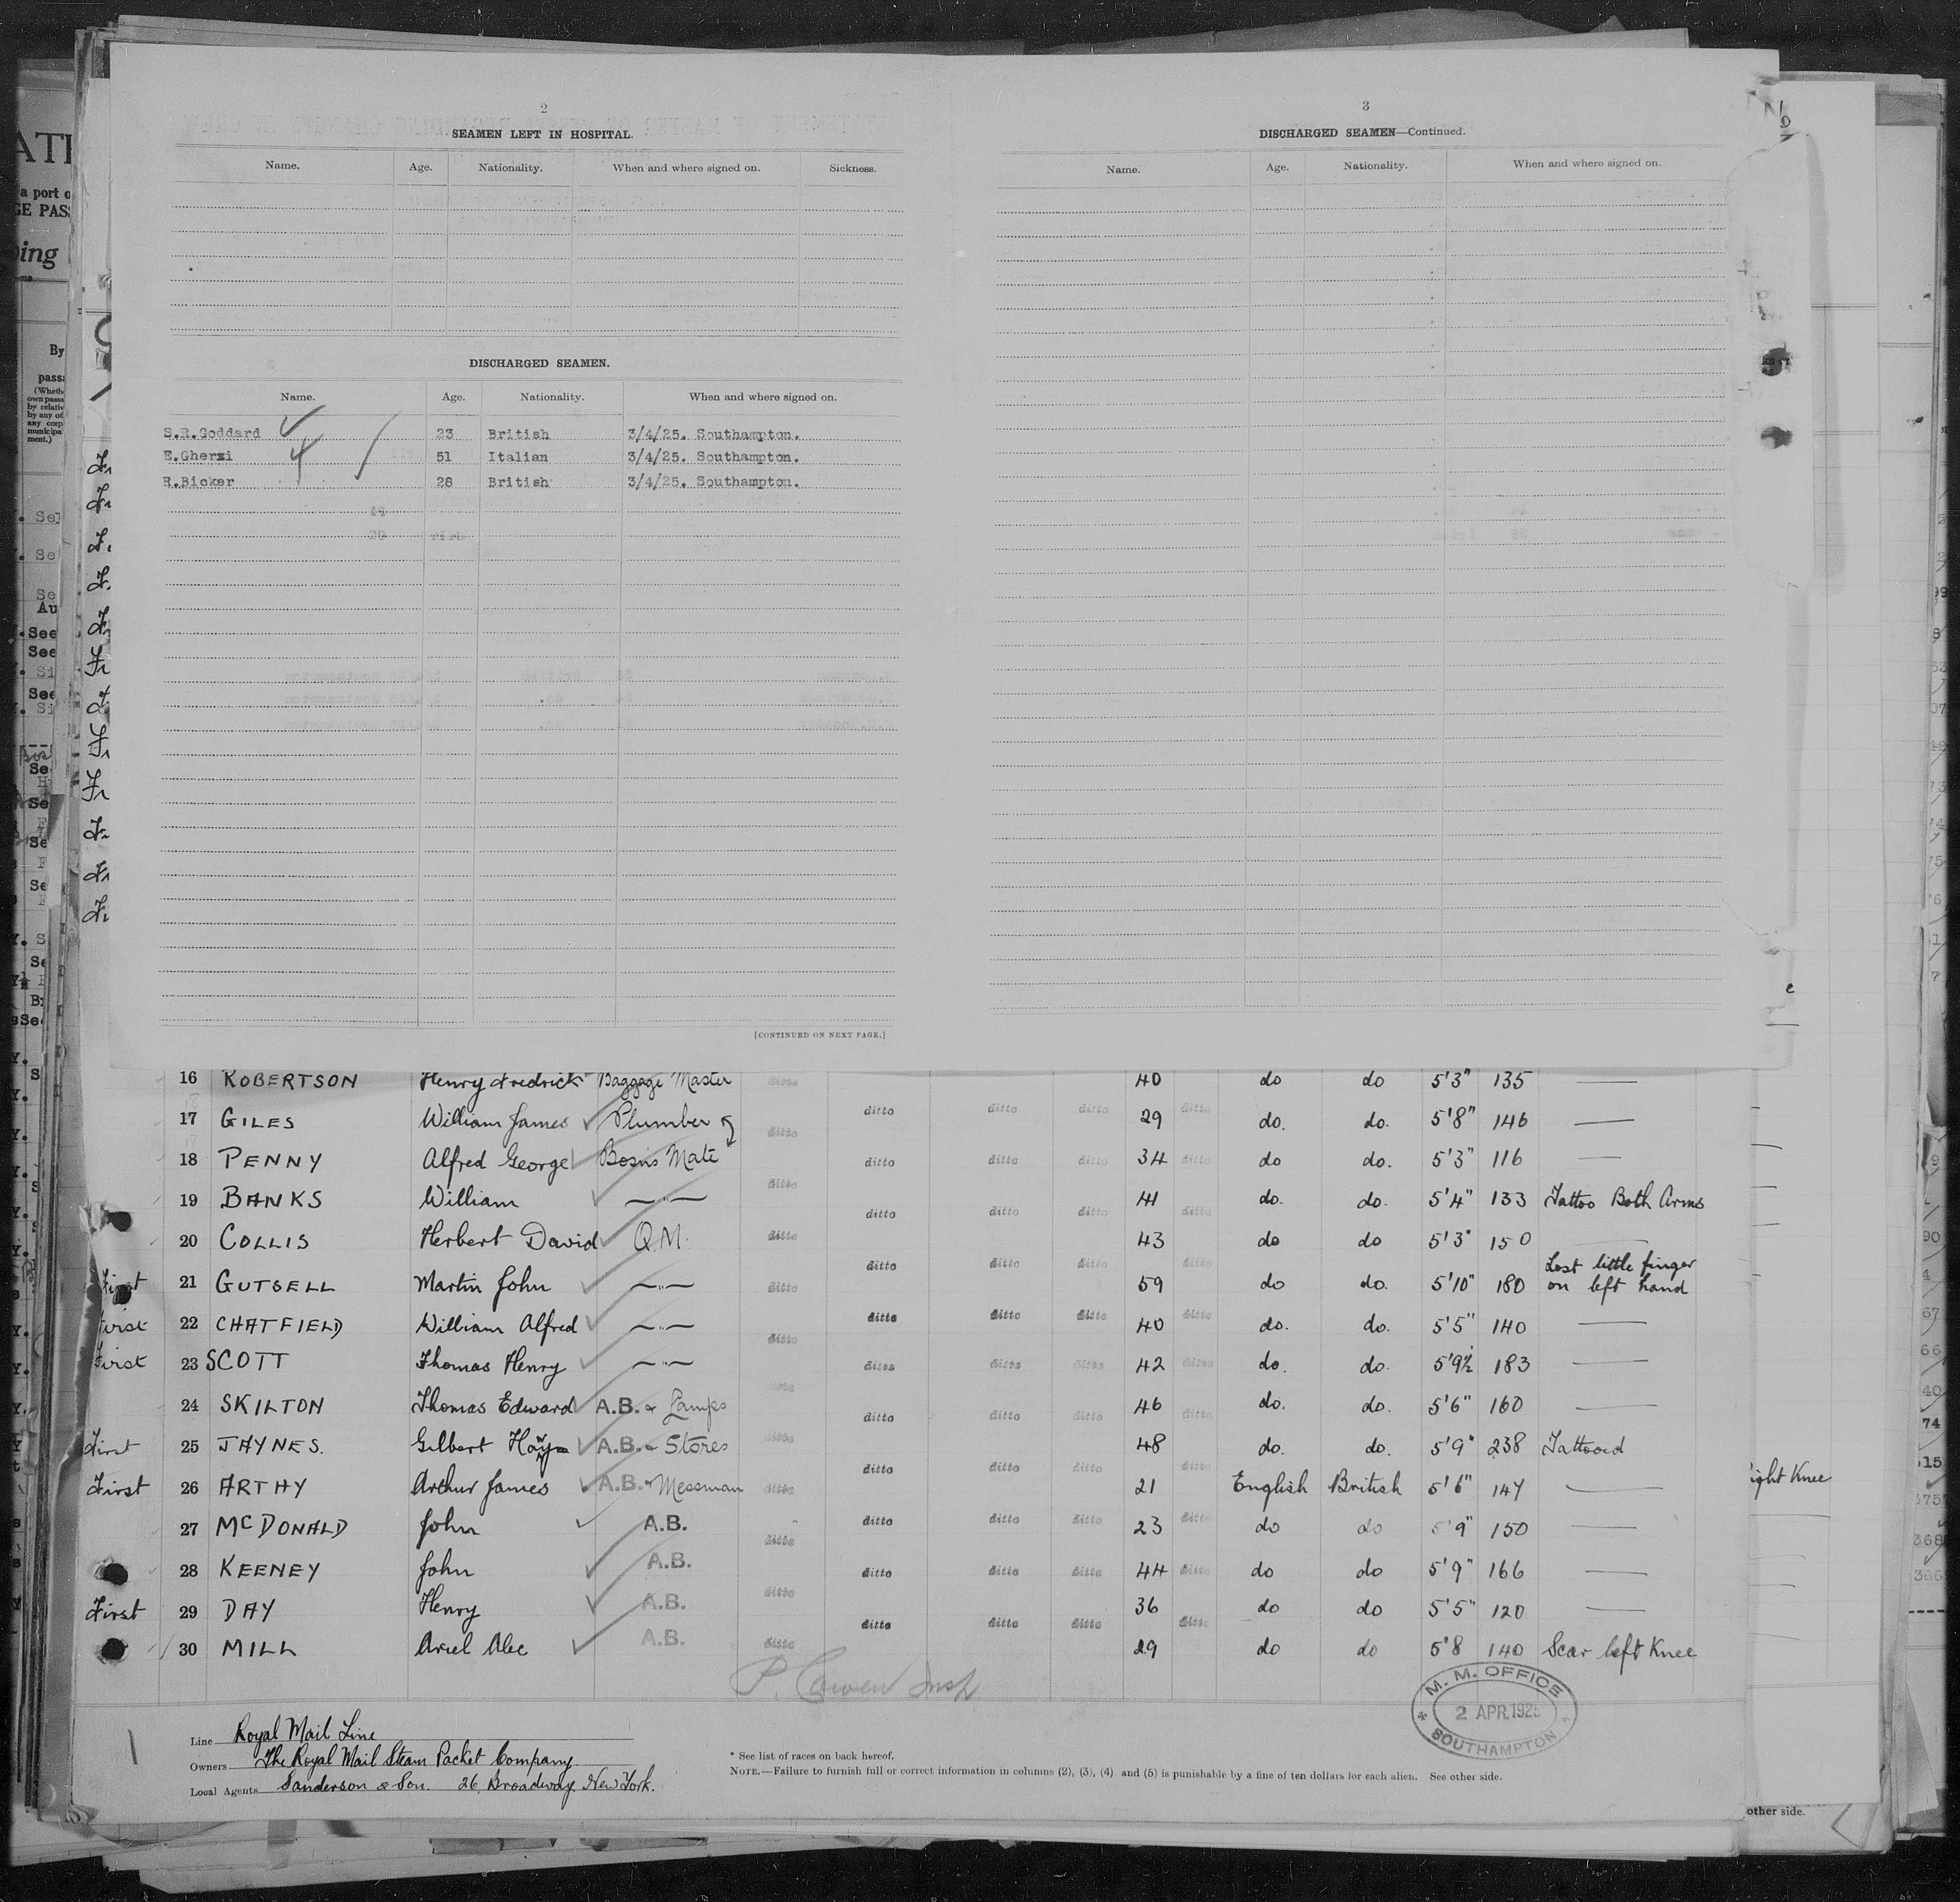 2
SEAMEN LEFT IN HOSPITAL.
Name. Age. Nationality. When and where signed on. Sickness.
DISCHARGED SEAMEN.
Name. Age. Nationality. When and where signed on.
S.R.Goddard 23 British 3/4/25. Southampton.
E.Gherzi 51 Italian 3/4/25. Southampton.
R.Bicker 28 British 3/4/25. Southampton.
[CONTINUED ON NEXT PAGE.]
3
DISCHARGED SEAMEN—Continued.
Name. Age. Nationality. When and where signed on.
16 ROBERTSON Henry Fredrick Baggage Master ditto 40 do do 5'3" 135 —
17 GILES William James Plumber ditto ditto ditto ditto ditto 29 do. do. 5'8" 146 —
18 PENNY Alfred George Bosns Mate ditto ditto ditto ditto ditto 34 do do. 5'3" 116 —
19 BANKS William —"— ditto ditto ditto ditto ditto 41 do. do. 5'4" 133 Tattoo Both Arms
20 COLLIS Herbert David Q.M. ditto ditto ditto ditto ditto 43 do do 5'3" 150 —
First 21 GUTSELL Martin John —"— ditto 59 do do. 5'10" 180 Lost little finger on left hand
First 22 CHATFIELD William Alfred —"— ditto ditto ditto ditto ditto 40 do. do. 5'5" 140 —
First 23 SCOTT Thomas Henry —"— ditto ditto ditto ditto 42 do. do. 5'9½ 183 —
24 SKILTON Thomas Edward A.B. & Lamps ditto ditto ditto ditto 46 do. do. 5'6" 160 —
First 25 JAYNES. Gilbert A.B. & Stores ditto ditto ditto ditto 48 do. do. 5'9" 238 Tattooed
First 26 ARTHY Arthur James A.B. & Messman ditto 21 English British 5'6" 147 —
27 McDONALD John A.B. ditto ditto ditto ditto ditto 23 do do 5'9" 150 —
28 KEENEY John A.B. ditto ditto ditto ditto ditto 44 do do 5'9" 166 —
First 29 DAY Henry A.B. 36 do do 5'5" 120 —
30 MILL Ariel Alec A.B. ditto ditto ditto ditto ditto 29 do do 5'8 140 Scar left Knee
P. Cowen Insp
M. M. OFFICE
2 APR.1925
SOUTHAMPTON
Line Royal Mail Line
Owners The Royal Mail Steam Packet Company
Local Agents Sanderson & Son. 26, Broadway. New York.
* See list of races on back hereof.
NOTE.—Failure to furnish full or correct information in columns (2), (3), (4) and (5) is punishable by a fine of ten dollars for each alien. See other side.
other side.